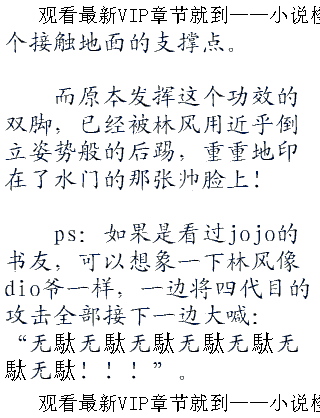 观看最新VIP章节就到——小说检
个接触地面的支撑点。
而原本发挥这个功效的
双脚，已经被林风用近乎倒
立姿势般的后踢，重重地印
在了水门的那张帅脸上！
ps：如果是看过jojo的
书友，可以想象一下林风像
dio爷一样，一边将四代目的
攻击全部接下一边大喊：
“无駄无駄无駄无駄无駄无
駄无駄！！！”。
观看最新VIP章节就到——小说检